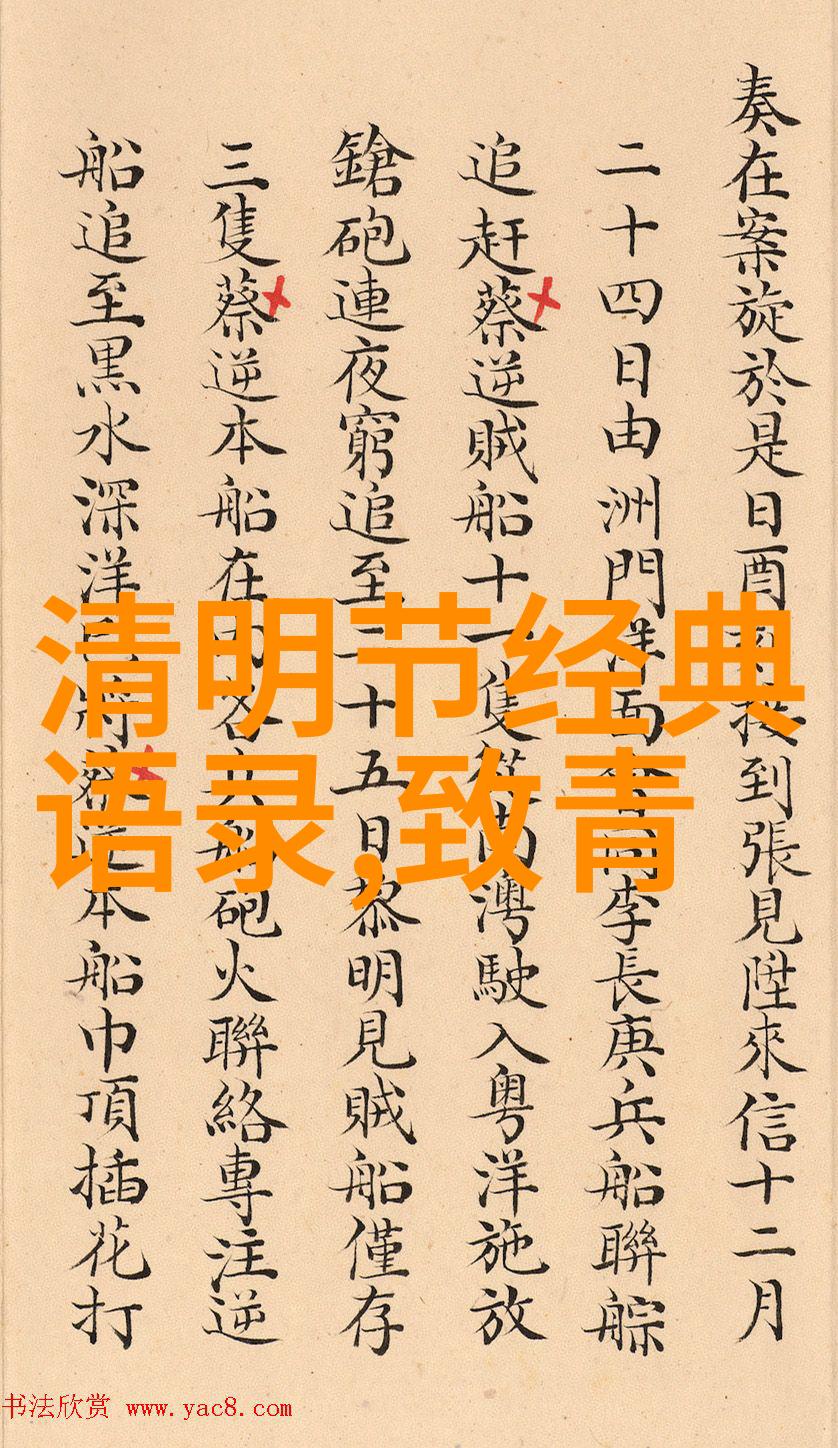 奏在案旋於是日酉到張見陞來信十二月
二十四日由洲門洋面李長庚兵船聯䑸
追赶蔡逆賊船十一隻南灣駛入粵洋施放
鎗砲連夜窮追至二十五日黎明見賊船僅存
三隻蔡逆本船在砲火聯絡專注逆
船追至黒水深洋本船巾頂插花打
清明节经典
语录,致青
书法欣赏 www.yac8.com